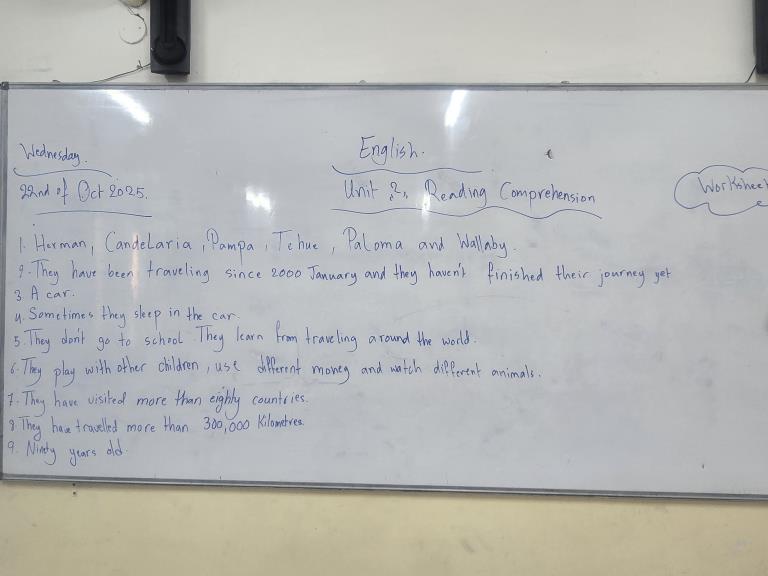 Wednesday.
English.
22nd of Oct 2025.
Unit 2, Reading Comprehension
Worksheet
1. Herman, Candelaria, Pampa, Tehue, Paloma and Wallaby.
2. They have been traveling since 2000 January and they haven't finished their journey yet
3. A car.
4. Sometimes they sleep in the car.
5. They don't go to school. They learn from traveling around the world.
6. They play with other children, use different money and watch different animals.
7. They have visited more than eighty countries.
8. They have travelled more than 300,000 Kilometres.
9. Ninety years old.